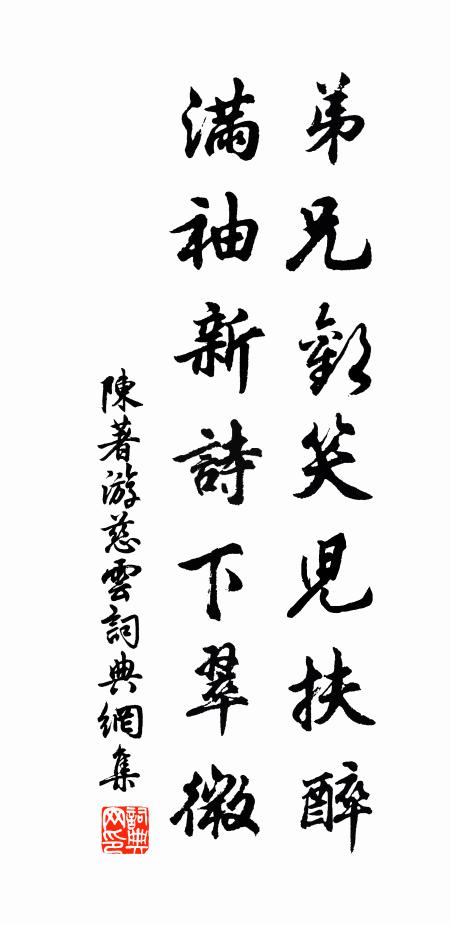 弟兄歡笑児扶醉
滿袖新詩下翠微
陳著游慈雲詞典網集
詞典网印